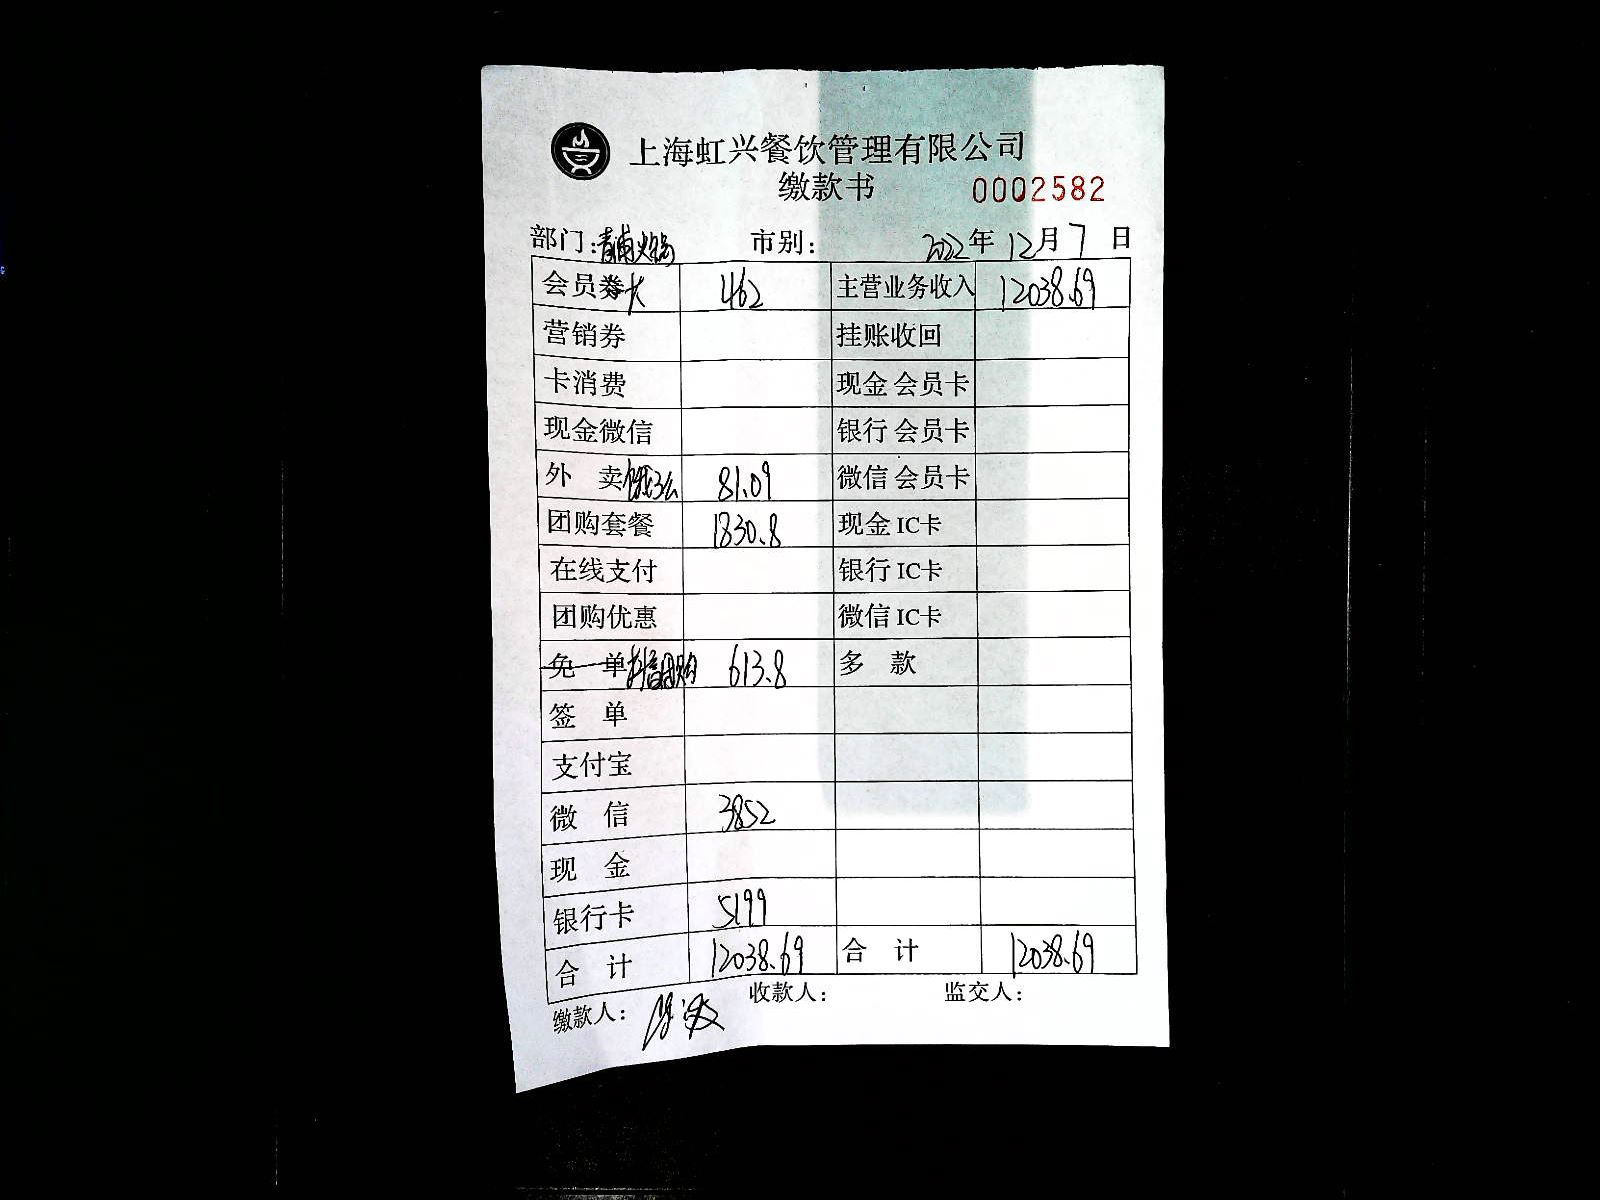 上海虹兴餐饮管理有限公司
缴款书 0002582
部门:青浦火锅 市别: 2022年12月7日
会员券大 462 主营业务收入 12038.69
营销券 挂账收回
卡消费 现金 会员卡
现金微信 银行 会员卡
外 卖饿了么 81.09 微信 会员卡
团购套餐 1830.8 现金 IC卡
在线支付 银行 IC卡
团购优惠 微信 IC卡
免 单抖音团购 613.8 多 款
签 单
支付宝
微 信 3852
现 金
银行卡 5199
合 计 12038.69 合 计 12038.69
缴款人: 收款人: 监交人: